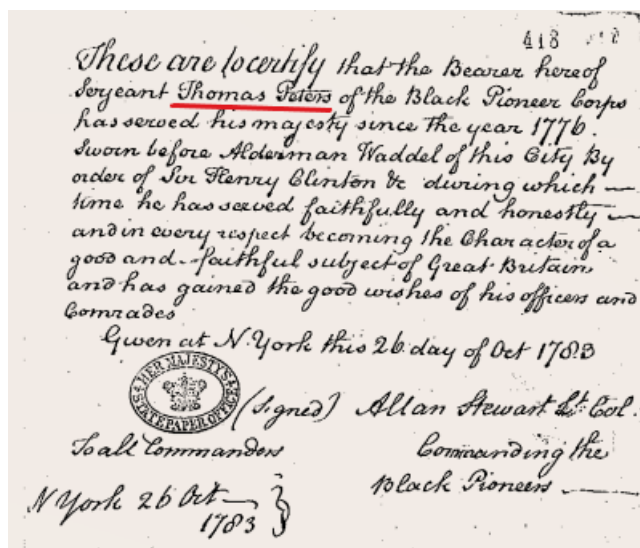 418
These are to certify that the Bearer hereof
Serjeant Thomas Peters of the Black Pioneer Corps
has served his majesty since the year 1776.
Sworn before Alderman Waddel of this City By
order of Sir Henry Clinton &c during which
time he has served faithfully and honestly
and in every respect becoming the Character of a
good and faithful subject of Great Britain
and has gained the good wishes of his officers and
Comrades
Given at N. York this 26 day of Oct 1783
HER MAJESTY'S STATE PAPER OFFICE
(Signed) Allan Stewart Lt Col.
To all Commanders
Commanding the
Black Pioneers
N York 26 Oct
1783